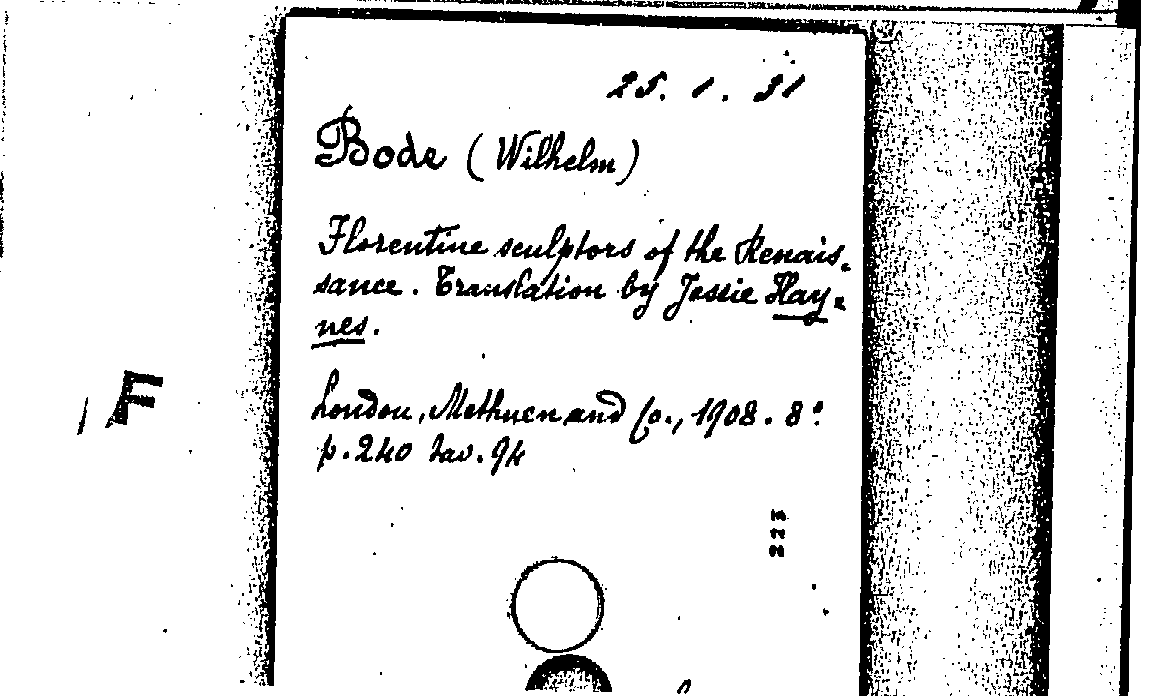 25. 1. 31
Bode (Wilhelm)
Florentine sculptors of the Renais-
sance. Translation by Jessie Hay-
nes.
London, Methuen and Co., 1908. 8°
p. 240 tav. 94
223
F